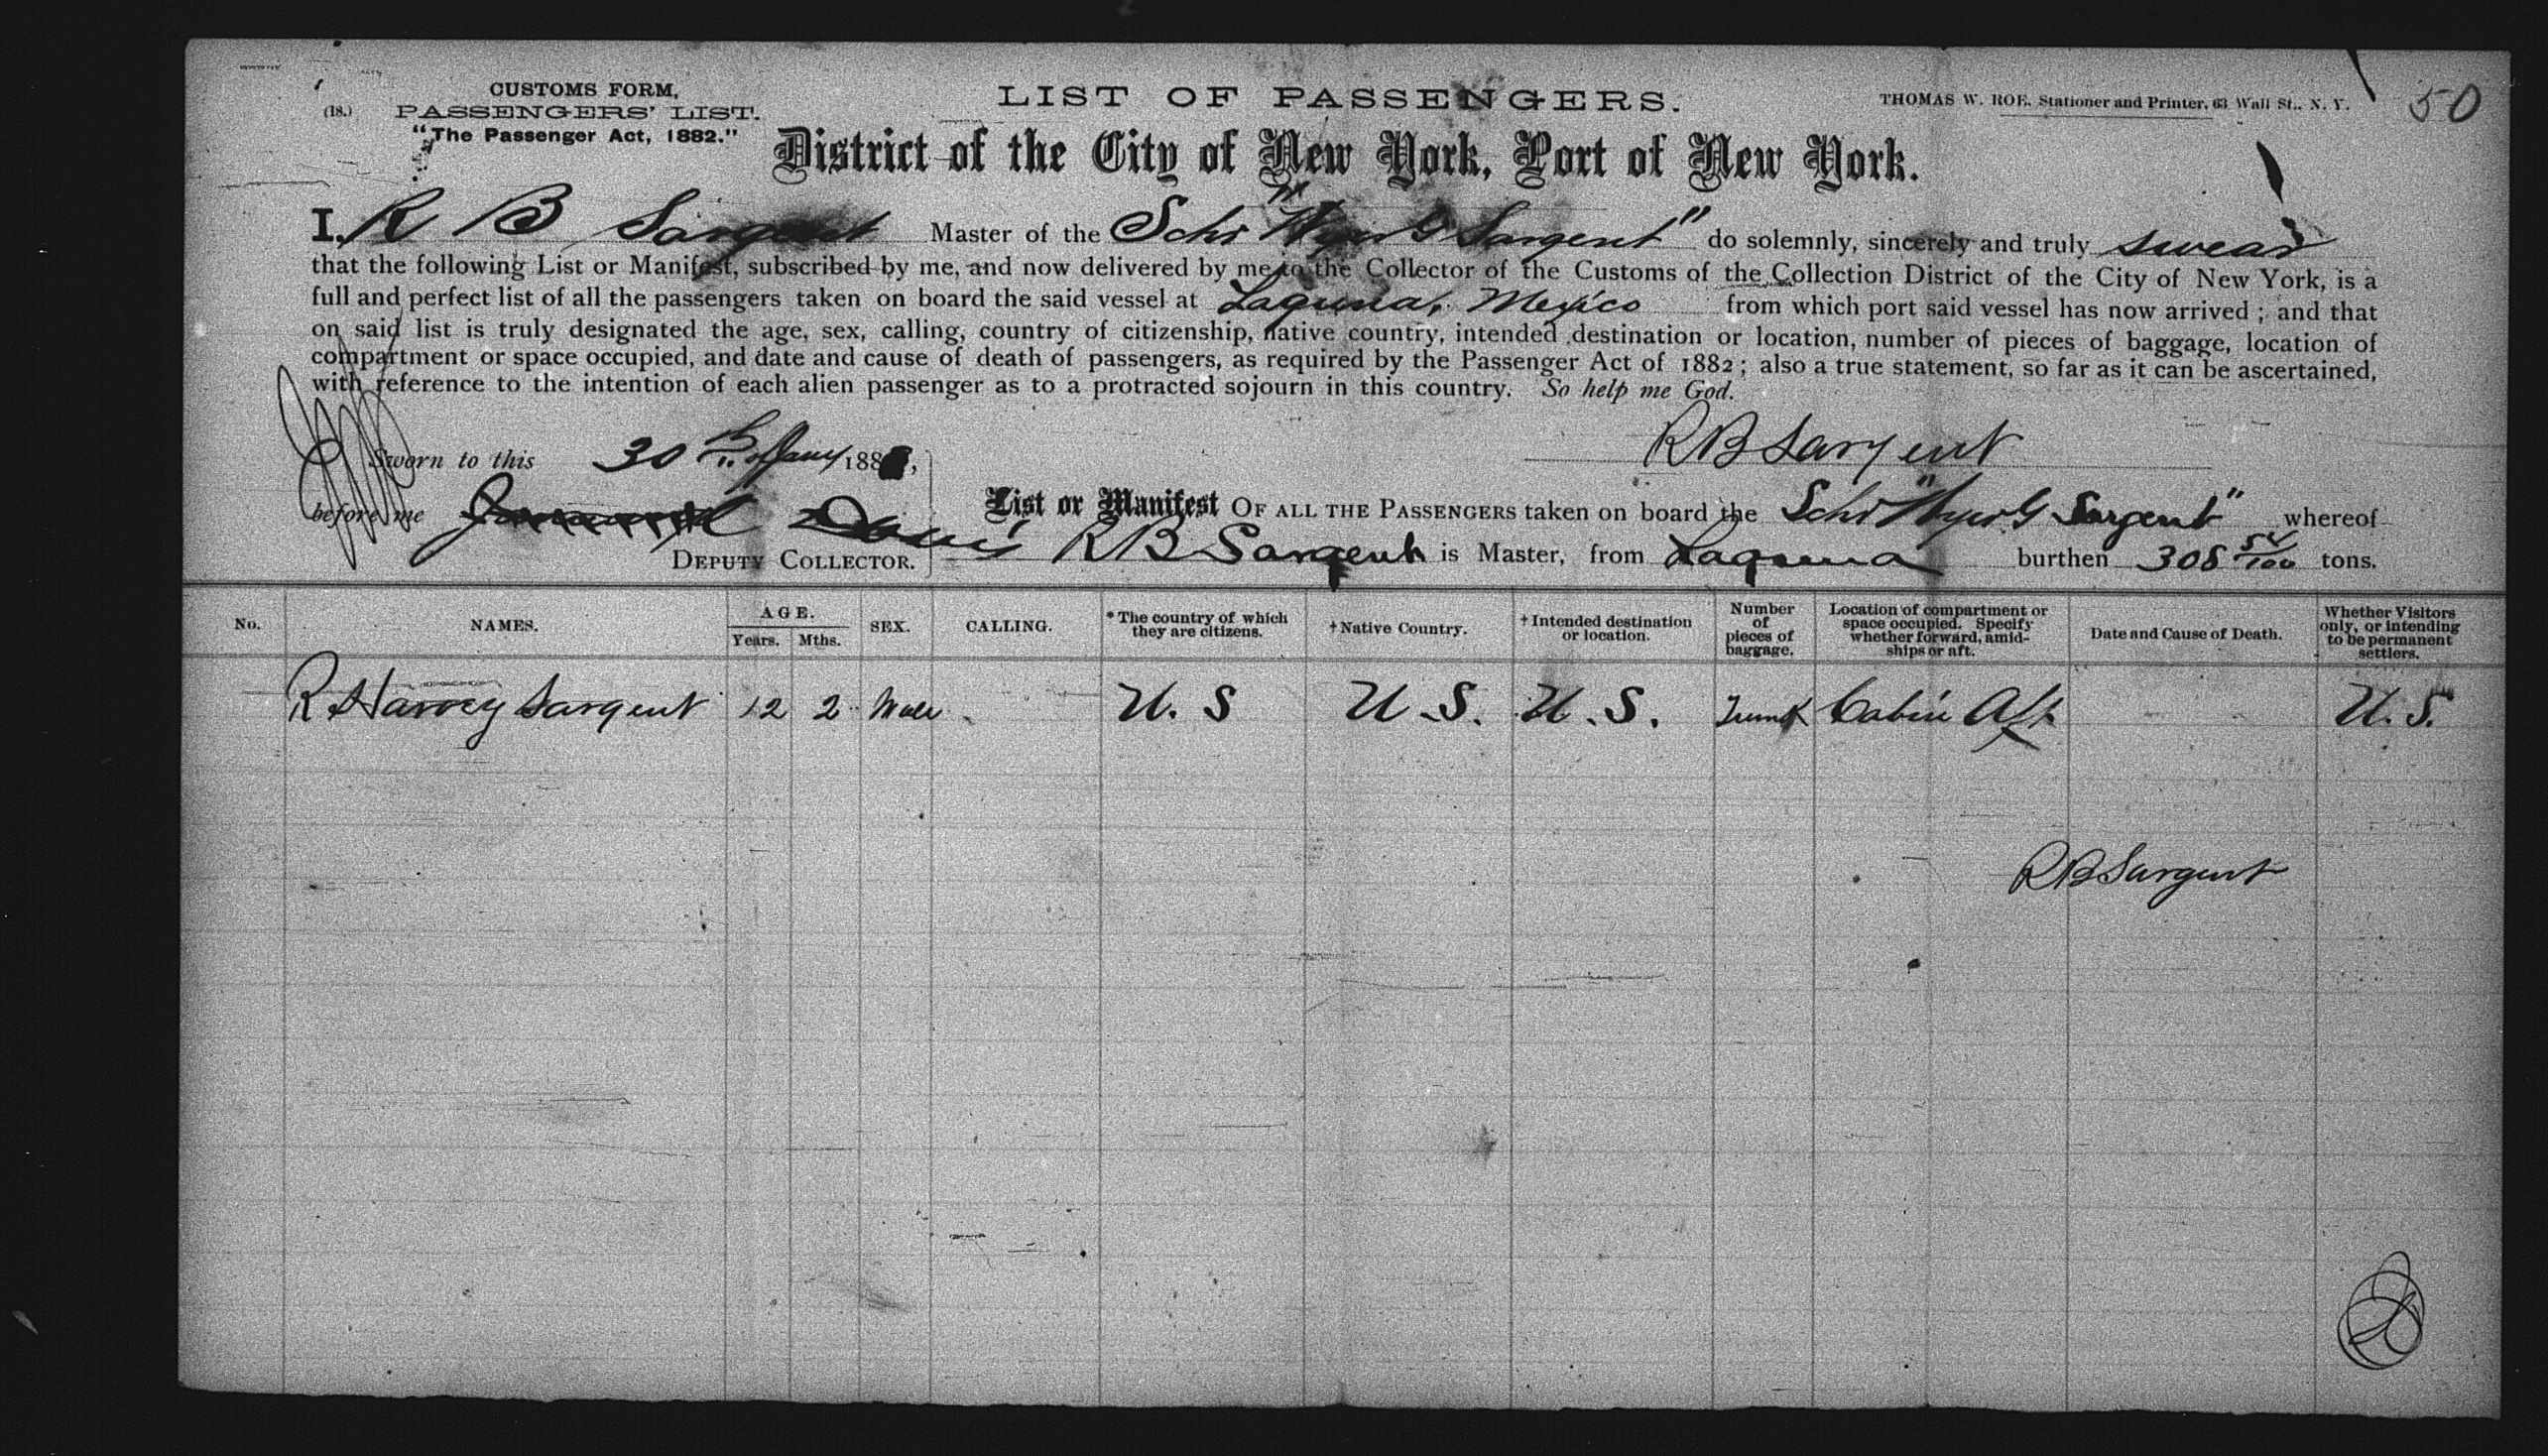 CUSTOMS FORM,
(18.) PASSENGERS' LIST.
"The Passenger Act, 1882."
LIST OF PASSENGERS.
THOMAS W. ROE, Stationer and Printer, 63 Wall St., N. Y.
50
District of the City of New York, Port of New York.
I, R B Sargent Master of the Schr " G Sargent" do solemnly, sincerely and truly swear
that the following List or Manifest, subscribed by me, and now delivered by me to the Collector of the Customs of the Collection District of the City of New York, is a
full and perfect list of all the passengers taken on board the said vessel at Laguna, Mexico from which port said vessel has now arrived; and that
on said list is truly designated the age, sex, calling, country of citizenship, native country, intended destination or location, number of pieces of baggage, location of
compartment or space occupied, and date and cause of death of passengers, as required by the Passenger Act of 1882; also a true statement, so far as it can be ascertained,
with reference to the intention of each alien passenger as to a protracted sojourn in this country. So help me God.
Sworn to this 30th of Jany 188 ,
R B Sargent
before me Davis
DEPUTY COLLECTOR.
List or Manifest OF ALL THE PASSENGERS taken on board the Schr " G Sargent" whereof
R B Sargent is Master, from Laguna burthen 308 54/100 tons.
No. NAMES. AGE. Years. Mths. SEX. CALLING. *The country of which they are citizens. †Native Country. †Intended destination or location. Number of pieces of baggage. Location of compartment or space occupied. Specify whether forward, amidships or aft. Date and Cause of Death. Whether Visitors only, or intending to be permanent settlers.
R Harvey Sargent 12 2 Male U. S U. S. U. S. Trunk Cabin Aft U. S.
R B Sargent